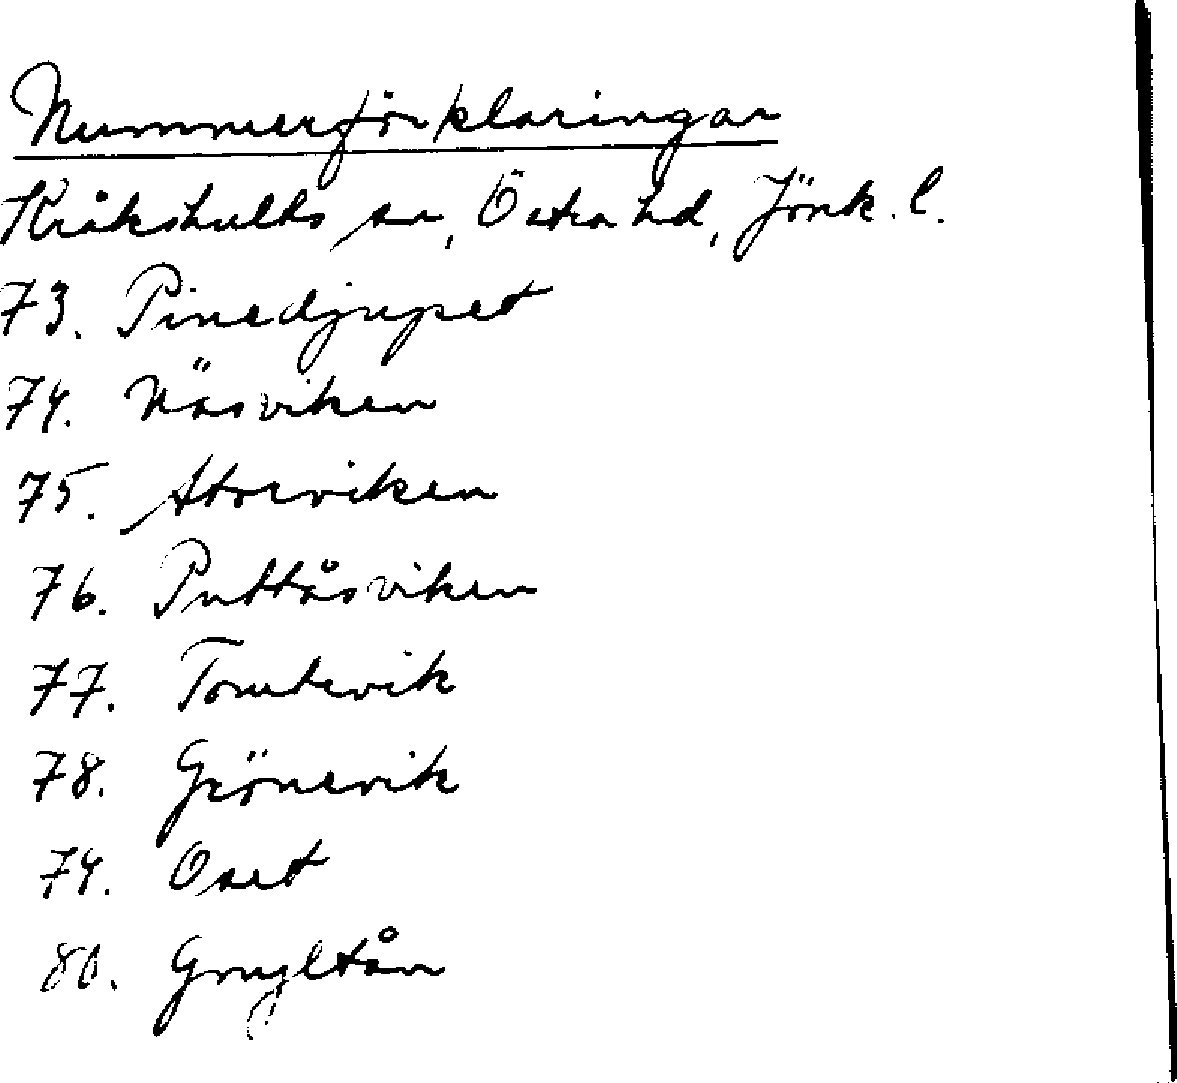 Nummerförklaringar
Kråkshults sn, Östra hd, Jönk. l.
73. Pinedjupet
74. Näsviken
75. Storviken
76. Puttåsviken
77. Tomtevik
78. Grönevik
79. Oset
80.